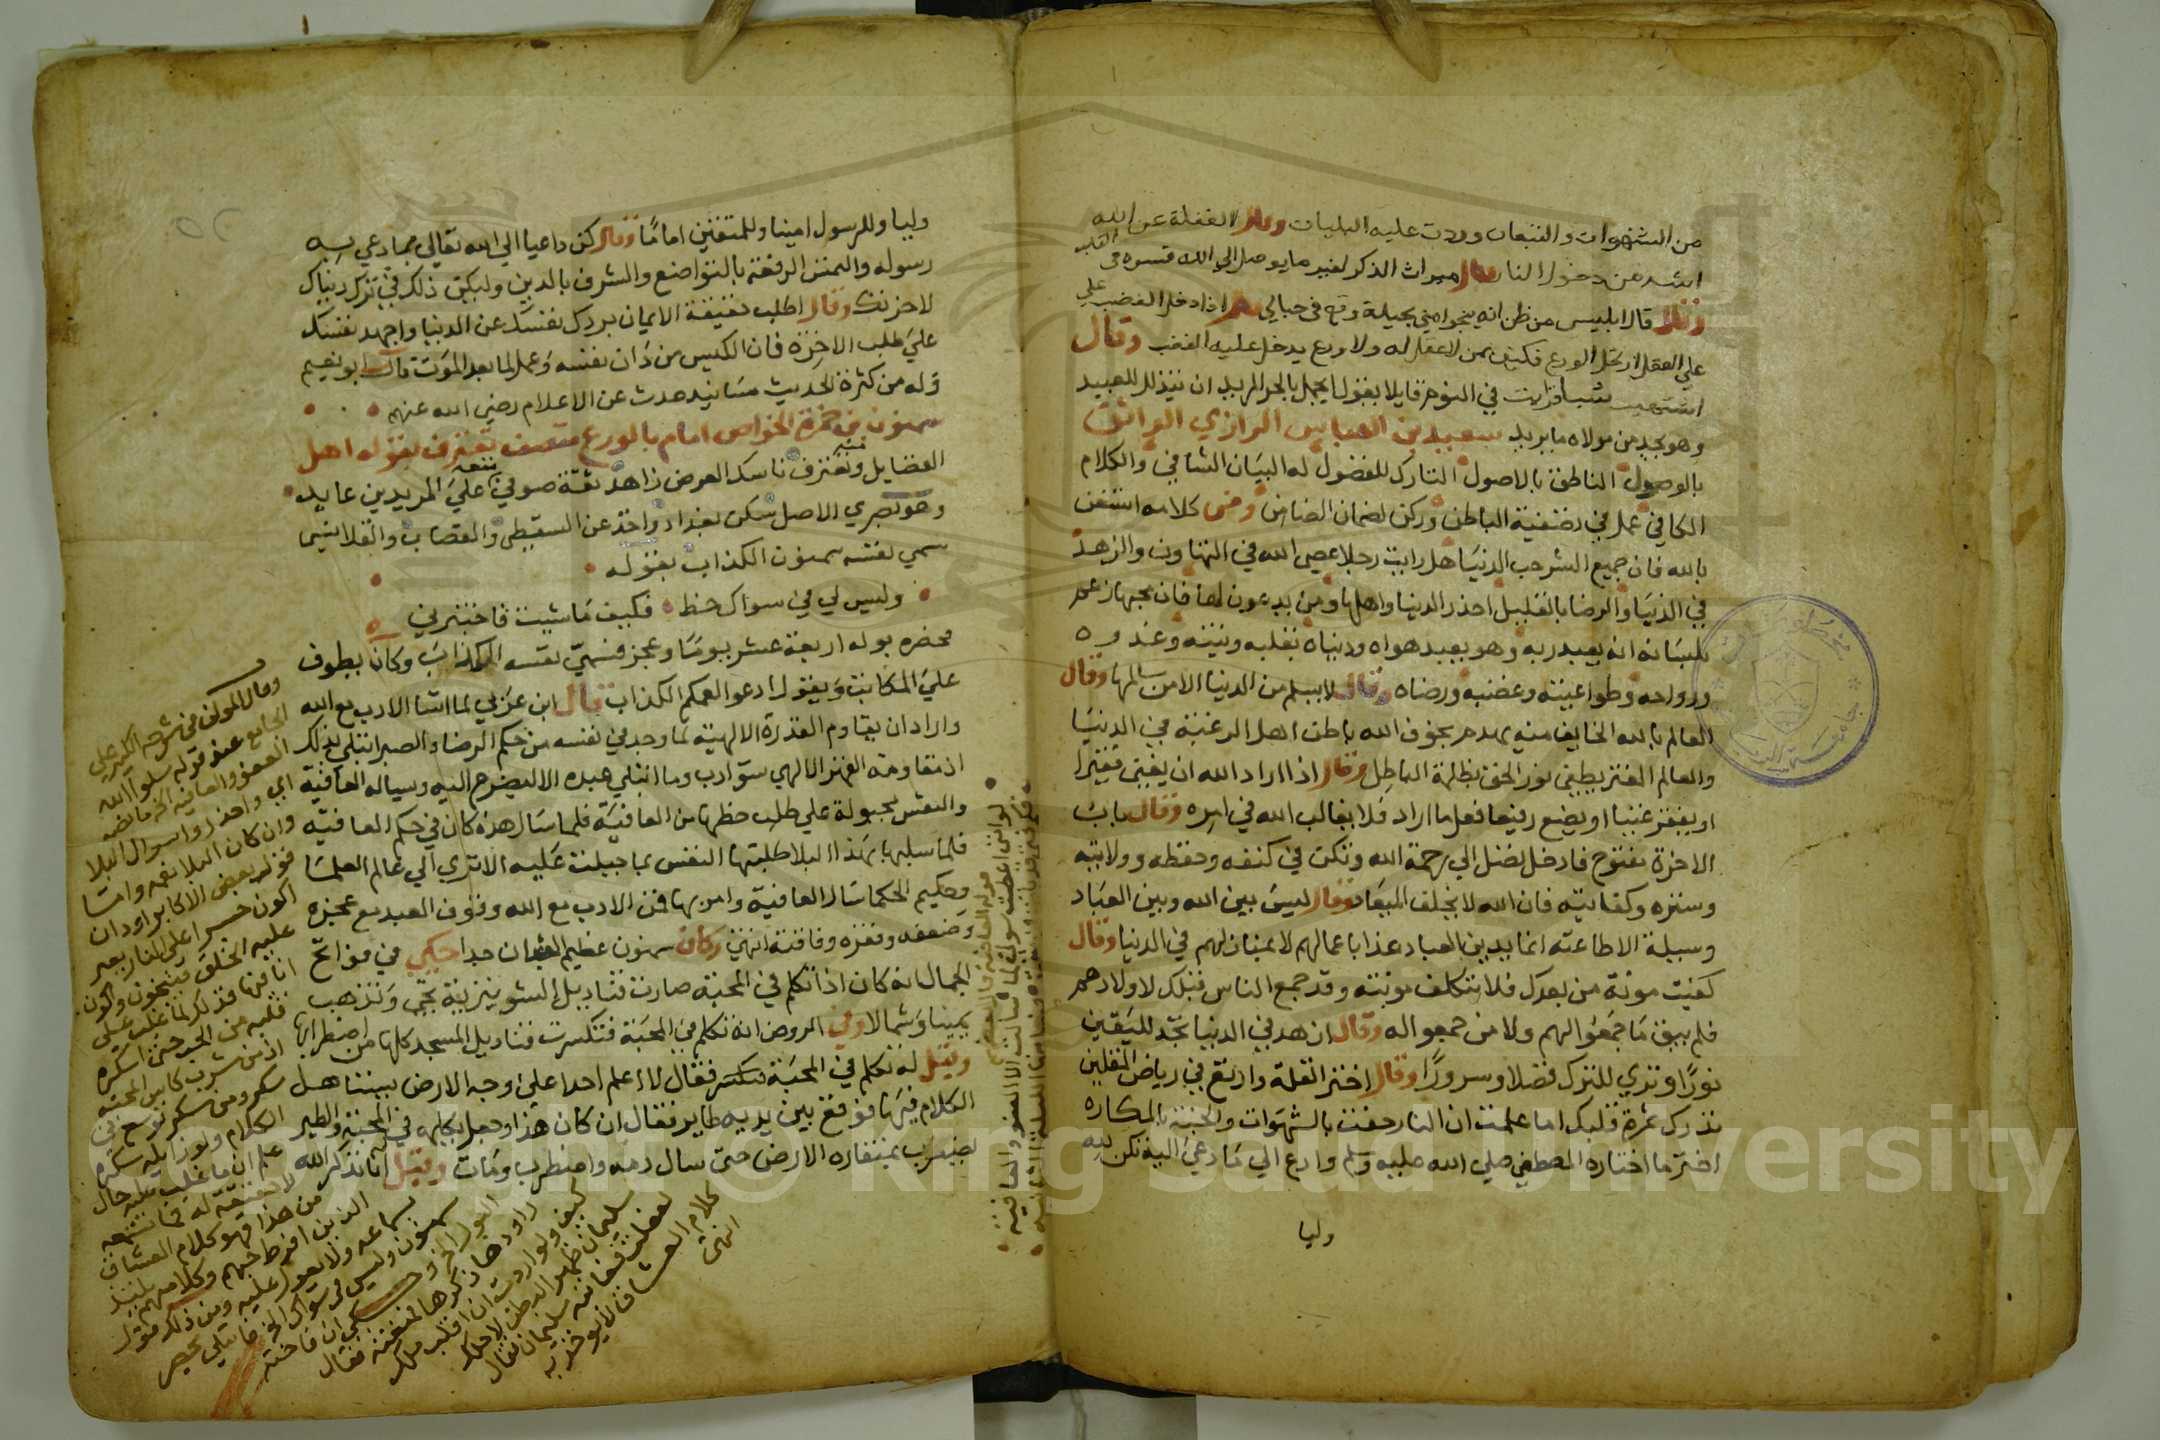 من الشهوات والتبعات وردت عليه البليات وقال الغفلة عن الله
اشد من دخول النار وقال ميراث الذكر لغير ما يوصل الى الله قسوة في القلب
وقال قال ابليس من ظن انه ينجو مني بحيلة وقع في حبالي اذا دخل الغضب على
على العقل ارتحل الورع فكيف بمن لا عقل له ولا ورع يدخل عليه الغضب وقال
في النوم قايلا يقول ايجمل بالحر المريد ان يتذلل للعبيد
وهو يجد من مولاه ما يريد سعيد بن العباس الرازي الواثق
بالوصول الناطق بالاصول التارك للفضول له البيان الشافي والكلام
الكافي عمل في تصفية الباطن وركن لضمان الضامن ومن كلامه استغن
بالله فان جميع الشر حب الدنيا هل رايت رجلا عصى الله في التهاون والزهد
في الدنيا والرضا بالقليل احذر الدنيا واهلها ومن يدعون لها فان
بلسانه انه يعبد ربه وهو يعبد هواه ودنياه بقلبه ونيته وغدوه
ورواحه وطواعيته وغضبه ورضاه وقال لا يسلم من الدنيا الا من سالمها وقال
العالم بالله الخايف منه يهدم بخوف الله باطن اهل الرغبة في الدنيا
والعالم المغتر يطفي نور الحق بظلمة الباطل وقال اذا اراد الله ان يغني فقيرا
او يفقر غنيا او يضع رفيعا فعل ما اراد فلا يغالب الله في امره وقال باب
الاخرة مفتوح فادخل تصل الى رحمة الله وتكن في كنفه وحفظه وولايته
وستره وكفايته فان الله لا يخلف الميعاد وقال ليس بين الله وبين العباد
وسيلة الا طاعته انما يدين العباد غدا باعمالهم لا بمنازلهم في الدنيا وقال
كفيت مونة من بعدك فلا تتكلف مونته وقد جمع الناس قبلك لاولادهم
فلم يبق ما جمعوا لهم ولا من جمعوا له وقال ازهد في الدنيا تجد لليقين
نورا وترى للترك فضلا وسرورا وقال اختر القلة وارتع في رياض المقلين
تدرك ثمرة قلبك اما علمت ان النار حفت بالشهوات والجنة بالمكاره
اختر ما اختاره المصطفى صلى الله عليه وسلم وادع الى ما دعى اليه تكن لله
وليا
وليا وللرسول امينا وللمتقين اماما وقال كن داعيا الى الله تعالى بما دعى به
رسوله والتمس الرفعة بالتواضع والشرف بالدين وليكن ذلك في ترك دنياك
لاخرتك وقال اطلب حقيقة الايمان بردك نفسك عن الدنيا واجهد نفسك
على طلب الاخرة فان الكيس من دان نفسه وعمل لما بعد الموت قال ابو نعيم
وله من كثرة الحديث مسانيد حدث عن الاعلام رضي الله عنهم
سمنون بن حمزة الخواص امام بالورع متصف تعترف بفضله اهل
الفضايل وتغترف ناسك العرض زاهد ثقة صوفي على المريدين عايد
وهو بصري الاصل سكن بغداد واخذ عن السقطي والقصاب والقلانسي
سمى نفسه سمنون الكذاب بقوله
وليس لي في سواك حظ فكيف ما شيت فاختبرني
فحصر بوله اربعة عشر يوما وعجز فسمى نفسه الكذاب وكان يطوف
على المكاتب ويقول ادعوا لعمكم الكذاب قال ابن عربي لما اسا الادب مع الله
واراد ان يقاوم القدرة الالهية لما وجد في نفسه من حكم الرضا والصبر ابتلي بذلك
اذ مقاومة القهر الالهي سو ادب وما ابتلى عبده الا ليضرع اليه ويساله العافية
والنفس مجبولة على طلب حظها من العافية فلما سال هذه كان في حكم العافية
فلما سلبها بهذا البلا طلبتها النفس بما جبلت عليه الا ترى الى عالم العلما
وحكيم الحكما سال العافية وامر بها فمن الادب مع الله وقوف العبد مع عجزه
وضعفه وفقره وفاقته انتهى وكان سمنون عظيم الشان جدا حكي في فواتح
الجمال انه كان اذا تكلم في المحبة صارت قناديل الشونيزية تجي وتذهب
يمينا وشمالا وفي الروض انه تكلم في المحبة فتكسرت قناديل المسجد كلها من اضطرابها
وقيل له تكلم في المحبة فقال لا اعلم احدا على وجه الارض يستاهل
الكلام فيها فوقع بين يديه طاير فقال ان كان هذا وجعل يكلمه في المحبة والطير
يضرب بمنقاره الارض حتى سال دمه واضطرب ومات وقيل له انما تذكر الله
وقال المولف في شرحه الكبير على
الجامع عند قوله سلوا الله
العفو والعافية الخ ما نصه
اي واحذروا سوال البلا
وان كان البلا نعمة واما
قول بعض الاكابر اود ان
اكون جسرا على النار يعبر
عليه الخلق فينجون واكون
انا فيها فذلك لما غلب على
قلبه من الحب حتى اسكره
اذ من شرب كاس المحبة
سكر ومن سكر توسع في
الكلام ولو زايله سكره
علم ان ما غلب عليه حال
لا حقيقة له فما تسمعه
من هذا فهو كلام العشاق
الذين افرط حبهم وكلامهم يلتذ
بسماعه ولا يعول عليه ومن ذلك قول
سمنون وليس لي في سواك الخ فابتلي بحصر
البول الخ وحكي ان فاختة
راودها ذكرها فمنعته فقال
كيف ولو اردت ان اقلب ملك
سليمان ظهر البطن لاجلك
لفعلت فعاتبه سليمان فقال
كلام العشاق لا يواخذ به
انتهى